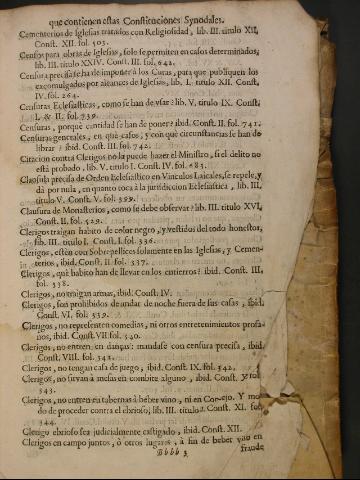 que contienen estas Constituciones Synodales.
Cementerios de Iglesias tratados con Religiosidad, lib. III. titulo XII.
Const. XII. fol. 503.
Censos para obras de Iglesias, solo se permiten en casos determinados;
lib. III. titulo XXIV. Const. III. fol. 642.
Censura precisa se ha de imponer à los Curas, para que publiquen los
excomulgados por alcances de Iglesias, lib. I. titulo XII. Const.
IV. fol. 264.
Censuras Eclesiasticas, como se han de usar? lib. V. titulo IX. Const.
I. & II. fol. 739.
Censuras, por què cantidad se han de poner? ibid. Const. II. fol. 741.
Censuras generales, en què casos, y con què circunstancias se han de
librar? ibid. Const. III. fol. 742.
Citacion contra Clerigos no la puede hazer el Ministro, si el delito no
està probado, lib. V. titulo I. Const. IV. fol. 683.
Clausula precisa de Orden Eclesiastico en Vinculos Laicales, se repele, y
dà por nula, en quanto toca à la jurisdiccion Eclesiastica, lib. III.
titulo V. Const. V. fol. 399.
Clausura de Monasterios, como se debe observar? lib. III. titulo XVI.
Const. II. fol. 529.
Clerigos traigan habito de color negro, y vestidos del todo honestos,
lib. III. titulo I. Const. I. fol. 336.
Clerigos, estèn con Sobrepellices solamente en las Iglesias, y Cemen-
terios, ibid. Const. II. fol. 337.
Clerigos, què habito han de llevar en los entierros? ibid. Const. III.
fol. 338.
Clerigos, no traigan armas, ibid. Const. IV.
Clerigos, son prohibidos de andar de noche fuera de sus casas, ibid.
Const. VI. fol. 339.
Clerigos, no representen comedias, ni otros entretenimientos profa-
nos, ibid. Const. VII. fol. 340.
Clerigos, no entren en danças: mandase con censura precisa, ibid.
Const. VIII. fol. 342.
Clerigos, no tengan casa de juego, ibid. Const. IX. fol. 342.
Clerigos, no sirvan à mesas en combite alguno, ibid. Const. X. fol.
343.
Clerigos, no entren en tabernas à beber vino, ni en Consejo. Y mo-
do de proceder contra el ebrioso; lib. III. titulo I. Const. XI. fol.
344.
Clerigo ebrioso sea judicialmente castigado, ibid. Const. XII.
Clerigos en campo juntos, ò otros lugares, à fin de beber vino en
Bbbb 3
fraude